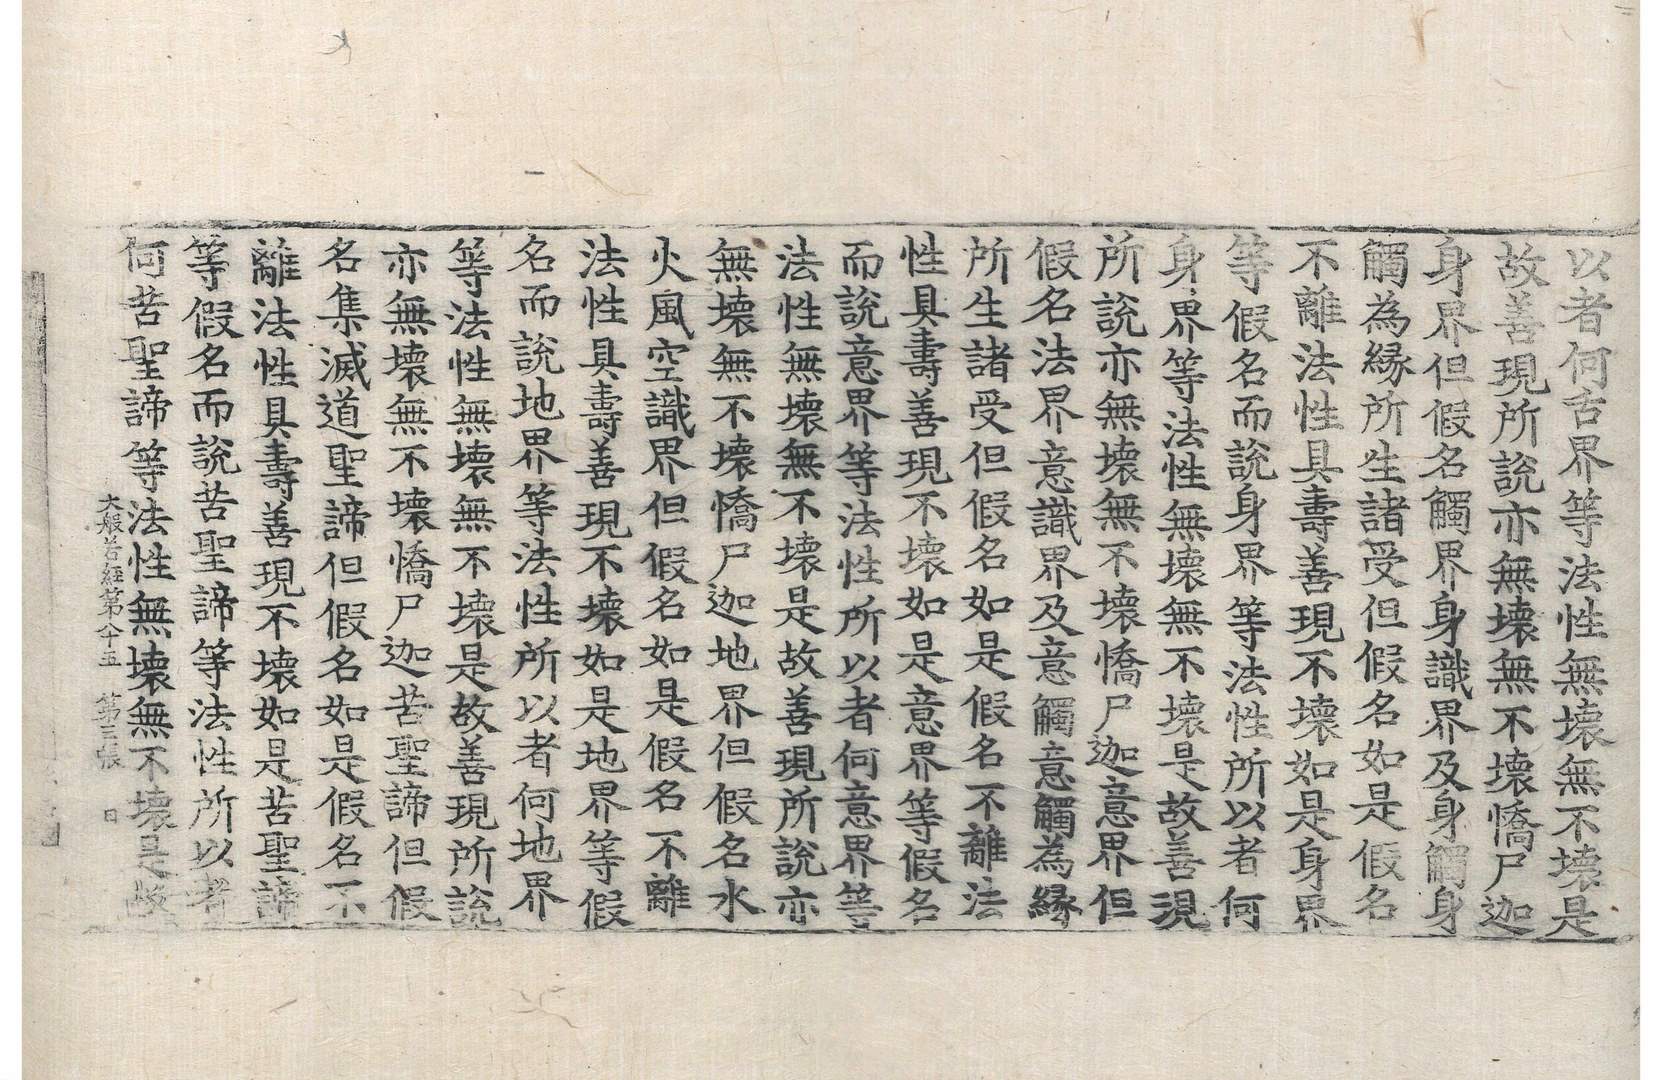 以者何舌界等法性無壞無不壞是
故善現所說亦無壞無不壞憍尸迦
身界但假名觸界身識界及身觸身
觸為縁所生諸受但假名如是假名
不離法性具壽善現不壞如是身界
等假名而說身界等法性所以者何
身界等法性無壞無不壞是故善現
所說亦無壞無不壞憍尸迦意界但
假名法界意識界及意觸意觸為縁
所生諸受但假名如是假名不離法
性具壽善現不壞如是意界等假名
而說意界等法性所以者何意界等
法性無壞無不壞是故善現所說亦
無壞無不壞憍尸迦地界但假名水
火風空識界但假名如是假名不離
法性具壽善現不壞如是地界等假
名而說地界等法性所以者何地界
等法性無壞無不壞是故善現所說
亦無壞無不壞憍尸迦苦聖諦但假
名集滅道聖諦但假名如是假名不
離法性具壽善現不壞如是苦聖諦
等假名而說苦聖諦等法性所以者
何苦聖諦等法性無壞無不壞是故
大般若經第八十五 第三張 日